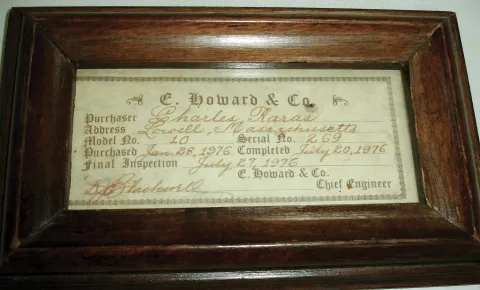 E. Howard & Co.
Purchaser Charles Karas
Address Lowell, Massachusetts
Model No. 10 Serial No. 269
Purchased Jan 26, 1976 Completed July 20, 1976
Final Inspection July 27, 1976
E. Howard & Co.
Chief Engineer